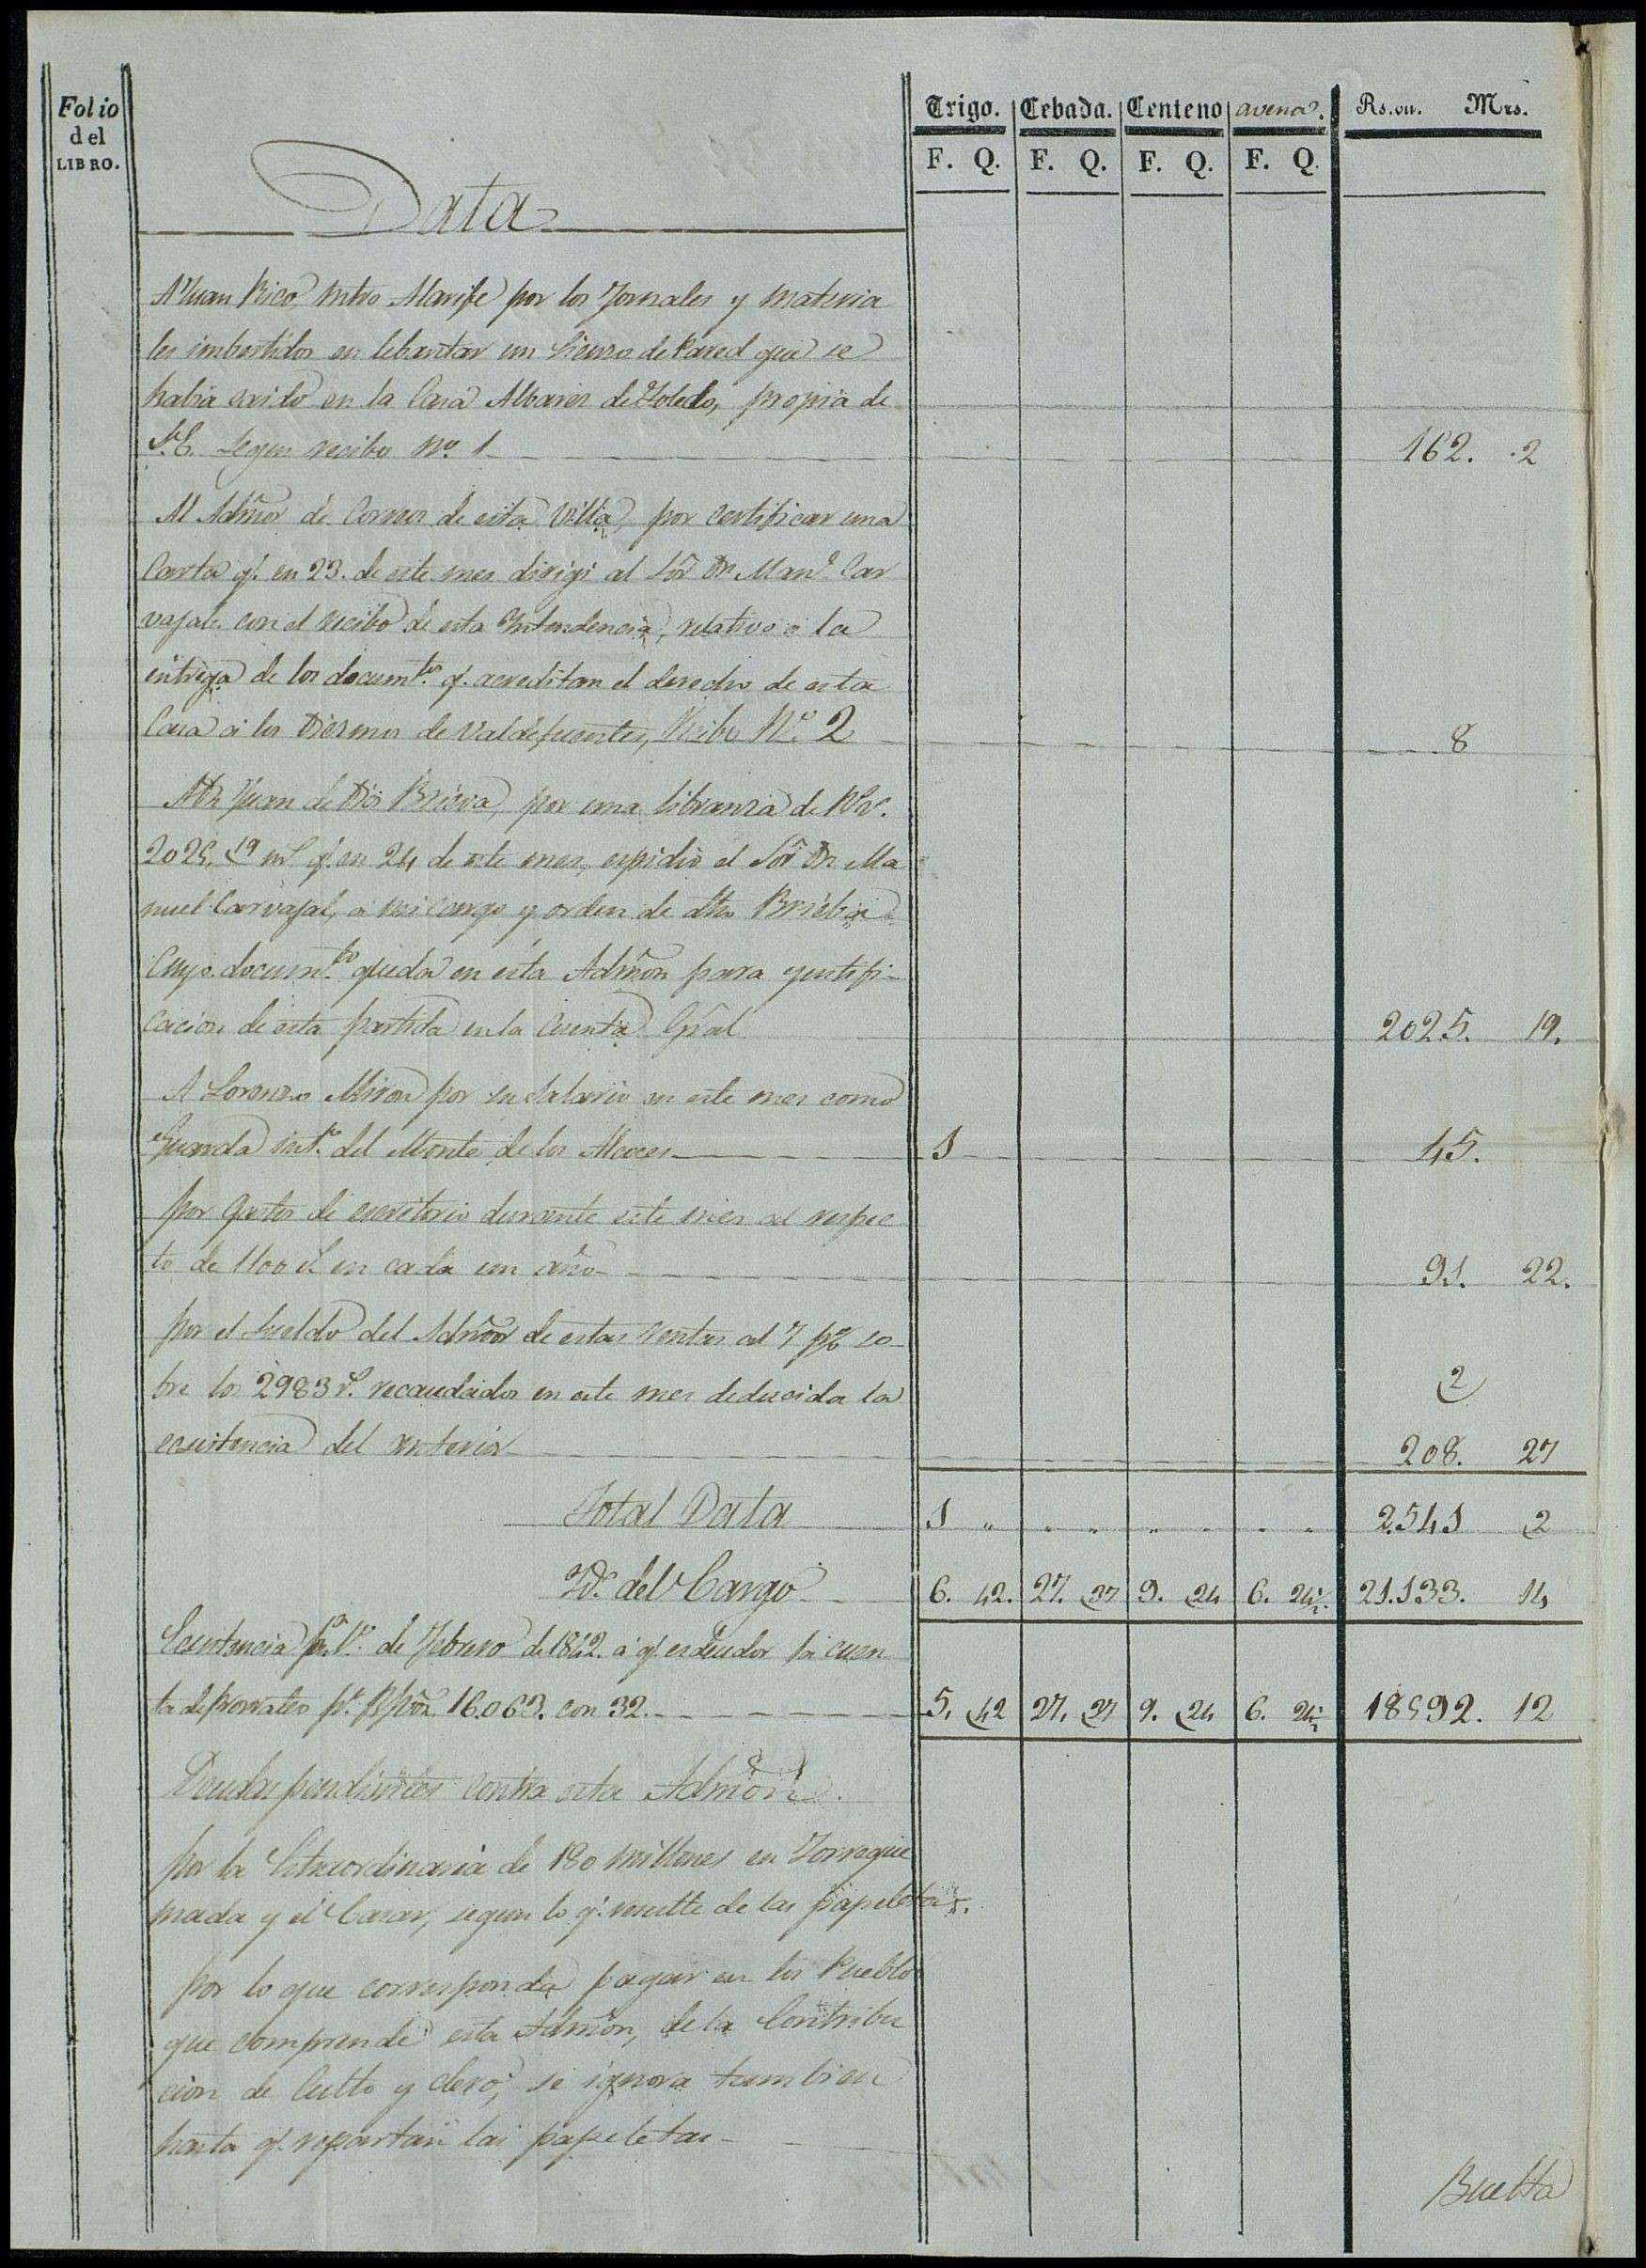 Folio
del
LIBRO.
Trigo. Cebada. Centeno avena. Rs. vn. Mrs.
F. Q. F. Q. F. Q. F. Q.
Data
A Juan Rico, Mtro Alarife por los Jornales y materia
les imbertidos en lebantar un Lienzo de Pared que se
habia caido en la Casa Albarez de Toledo, propia de
S.E. segun recibo No. 1 162. .2
Al Admor de Correos de esta Villa, por certificar una
Carta q.e en 23. de este mes dirigi al Sor Dn. Manl. Car
vajal. con el recibo de esta Intendencia, relativo á la
entrega de los documtos. q. acreditan el derecho de esta
Casa á los Diezmos de Valdefuentes, Recibo No. 2 8
A Dn Juan de Ds Brieva, por una libranza de Rs.
2025. 19 ms q. en 24 de este mes, espidió el Sor Dn Ma
nuel Carvajal, á mi cargo y orden de dho Brieba
Cuyo documto. queda en esta Admon para justifi-
cacion de esta partida en la Cuenta Gral 2025. 19.
A Lorenzo Miron por su salario en este mes como
Guarda int.o del Monte de los Alcoces 1 45.
por gastos de escritorio durante este mes al respec
to de 1100 rs en cada un año 91. 22.
por el sueldo del Admor de estas rentas al 7 p% so-
bre los 2983 rs. recaudados en este mes deducida la 2
ecsistencia del anterior 208. 27
Total Data 1 " " " " " " " 2.541 2
Yd. del Cargo 6. 42. 27. 37 9. 24 6. 24½ 21.133. 14
Ecsistencia pa. 1o. de Febrero de 1842. á q. es deudor la cuen
ta de prorrateo pr. 16.063. con 32. 5. 42 27. 37 9. 24 6. 24½ 18592. 12
Deudas pendientes contra esta Admon.
por la Extraordinaria de 180 millones en Torreque
mada y el Casar, segun lo q. resulte de las papeletas.
por lo que corresponda pagar en los Pueblos
que comprende esta Admon, de la Contribu
cion de Culto y clero, se ignora tambien
hasta q. repartan las papeletas
Buelta